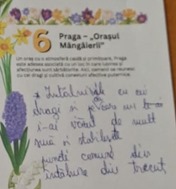 6
Praga – „Orașul
Mângâierii"
Un oraș cu o atmosferă caldă și primitoare, Praga
este adesea asociată cu un loc în care iubirea și
afecțiunea sunt sărbătorite. Aici, oamenii se reunesc
cu cei dragi și cultivă conexiuni afective puternice.
Întâlnirile cu cei
dragi și pe care nu
i-ai văzut de mult
timp și stabilește
puncte comune din
întâlnire din trecut